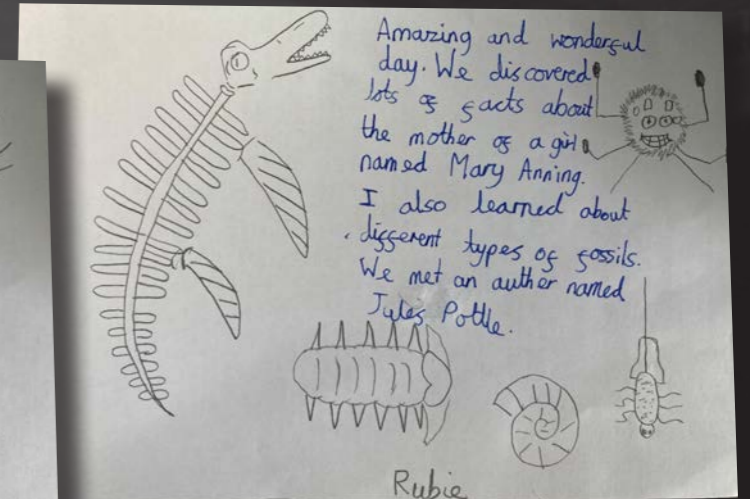 Amazing and wonderful
day. We discovered
lots of facts about
the mother of a girl
named Mary Anning.
I also learned about
different types of fossils.
We met an auther named
Jules Pottle.
Rubie